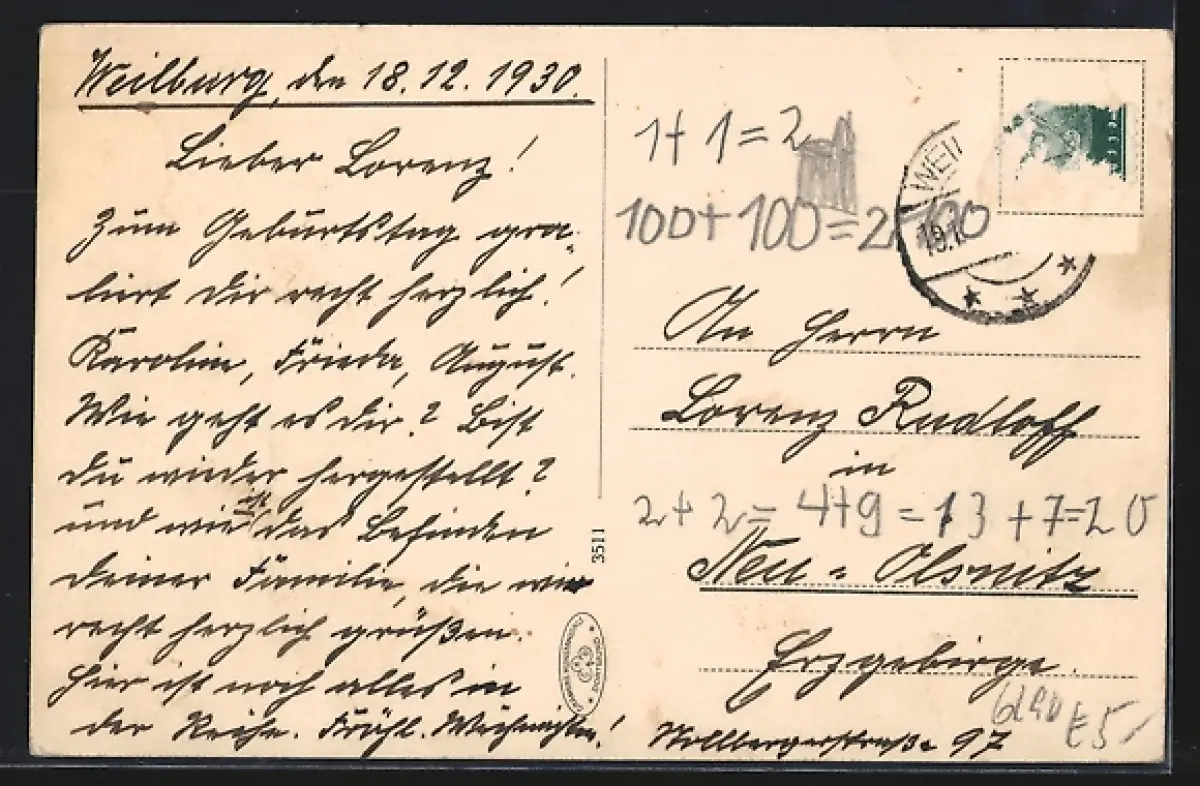 Weilburg, den 18.12.1930.
Lieber Lorenz!
Zum Geburtstag gra-
liert dir recht herzlich!
Karolin, Frieda, August.
Wie geht es dir? Bist
du wieder hergestellt?
ist
und wie das Befinden
deiner Familie, die wir
recht herzlich grüßen.
Hier ist noch alles in
der Reihe. Fröhl. Weihnachten!
3511
1+1=2
100+100=200
WEIL
19.1
An Herrn
Lorenz Rudloff
in
2+2=4+9=13+7=20
Neu-Olsnitz
Erzgebirge.
97